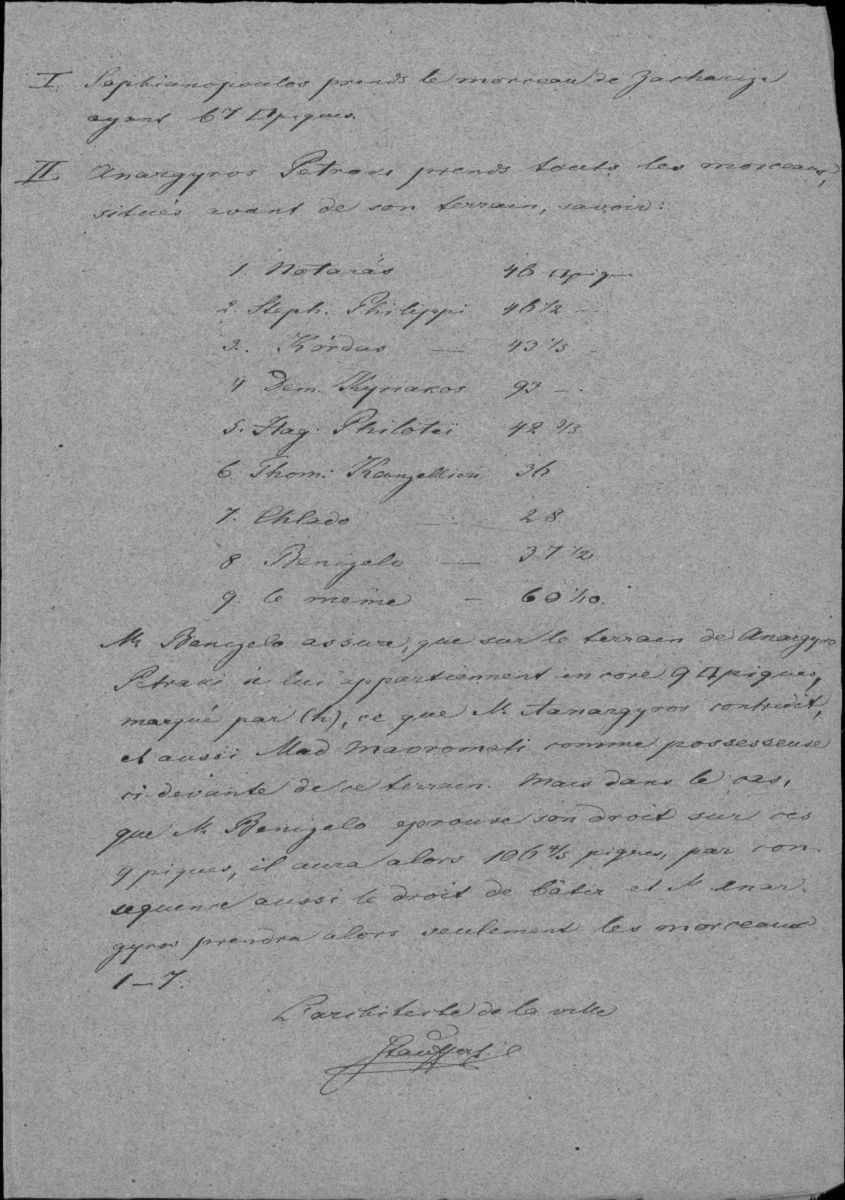 I. Sophianopoulos prends le morceau de Zachariza
ayant 67 □piques.
II Anargyros Petraki prends touts les morceaux,
situés avant de son terrain, savoir:
1. Notarás 46 □piques
2. Steph. Philippi 46 1/2 —
3. Kórdas — 43 1/3 —
4 Dem. Kyriakos 93 —.
5. Hag. Philoteï 42 2/3
6. Thom. Kanzellieri 36
7. Chlado — 28
8 Benizelo — 37 1/2
9. le même — 60 1/10.
Mr Benizelo assure, que sur le terrain de Anargyro
Petraki à lui appartiennent encore 9 □piques,
marqué par (h), ce que Mr Anargyros contredit,
et aussi Mad Mavromati comme possesseuse
ci-devante de ce terrain. Mais dans le cas,
que Mr Benizelo eprouse son droit sur ces
9 piques, il aura alors 106 4/5 piques, par con-
sequence aussi le droit de bâtir et Mr Anar-
gyros prendra alors seulement les morceaux
1—7.
L'architecte de la ville
Stauffert